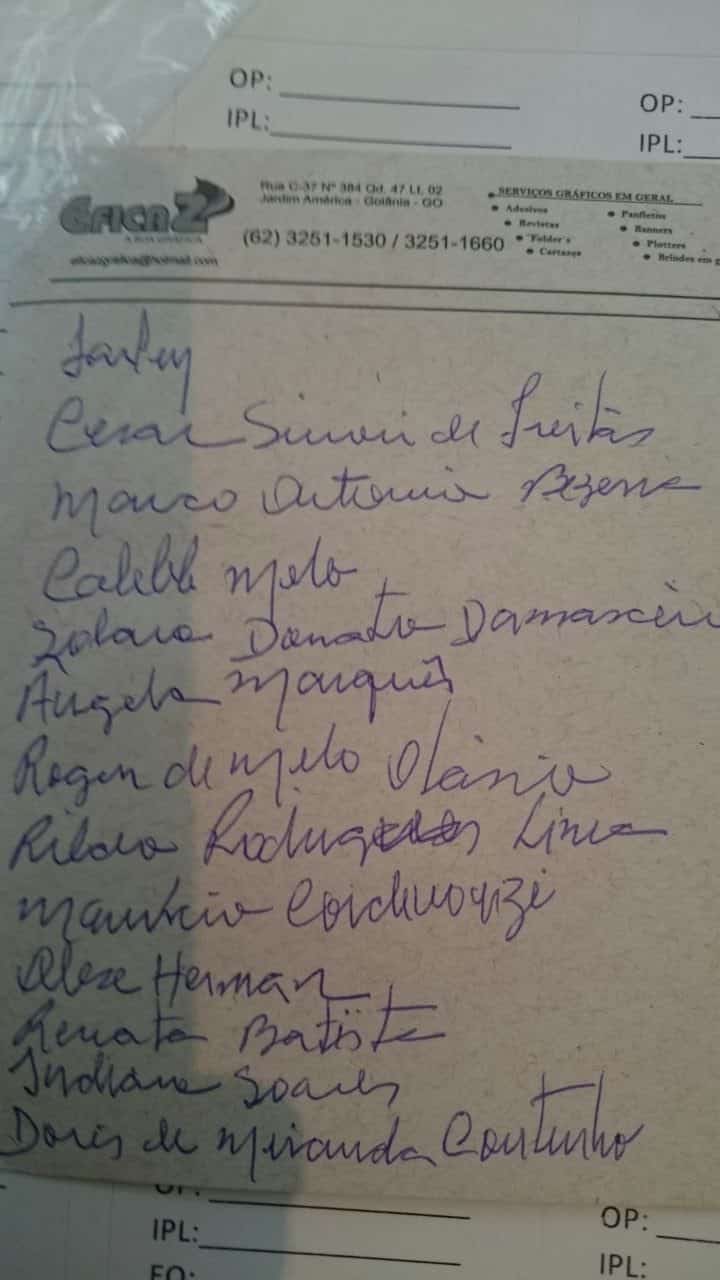 OP:
OP:
IPL:
IPL:
EficaZ
Rua C-37 Nº 384 Qd. 47 Lt. 02
Jardim América - Goiânia - GO
(62) 3251-1530 / 3251-1660
eficazgrafica@hotmail.com
SERVIÇOS GRÁFICOS EM GERAL
Adesivos
Revistas
"Folder's
Cartazes
Panfletos
Banners
Plotters
Brindes em g
Cesar Simoni de Freitas
Marco Antonio Bezerra
Calebe Melo
Donato Damasceno
Ângela Marquês
Roger de Melo Otanio
Rildo Rodrigues Lima
Mauricio
Alex Herman
Renata Batista
Indiana Soares
Doris de Miranda Coutinho
OP:
OP:
IPL:
IPL:
EQ: